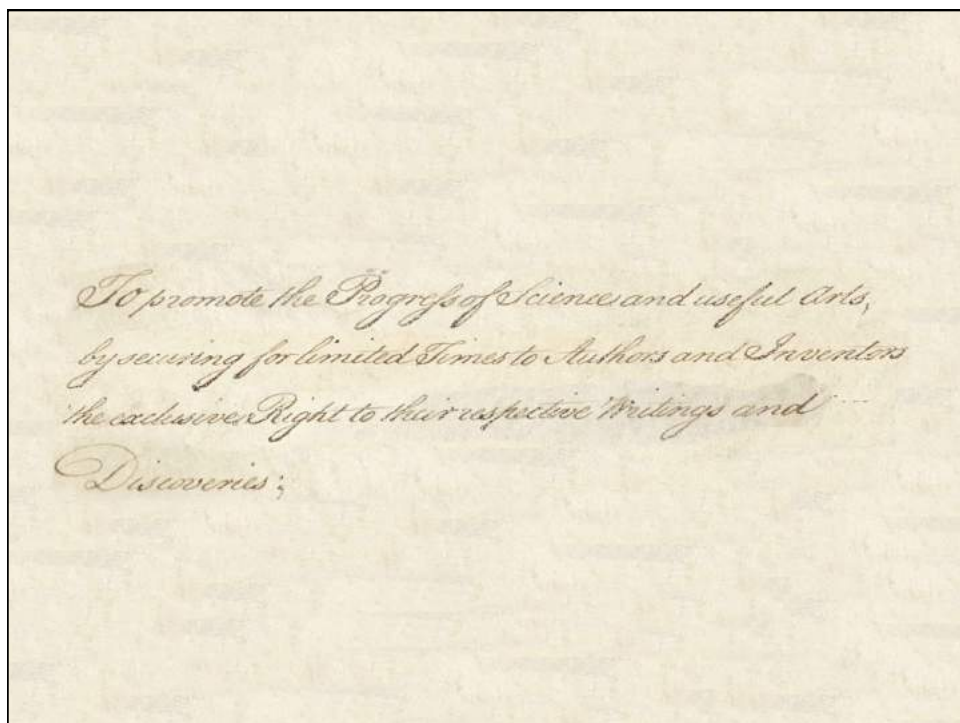 To promote the Progreſs of Science and useful Arts,
by securing for limited Times to Authors and Inventors
the exclusive Right to their respective Writings and
Discoveries;